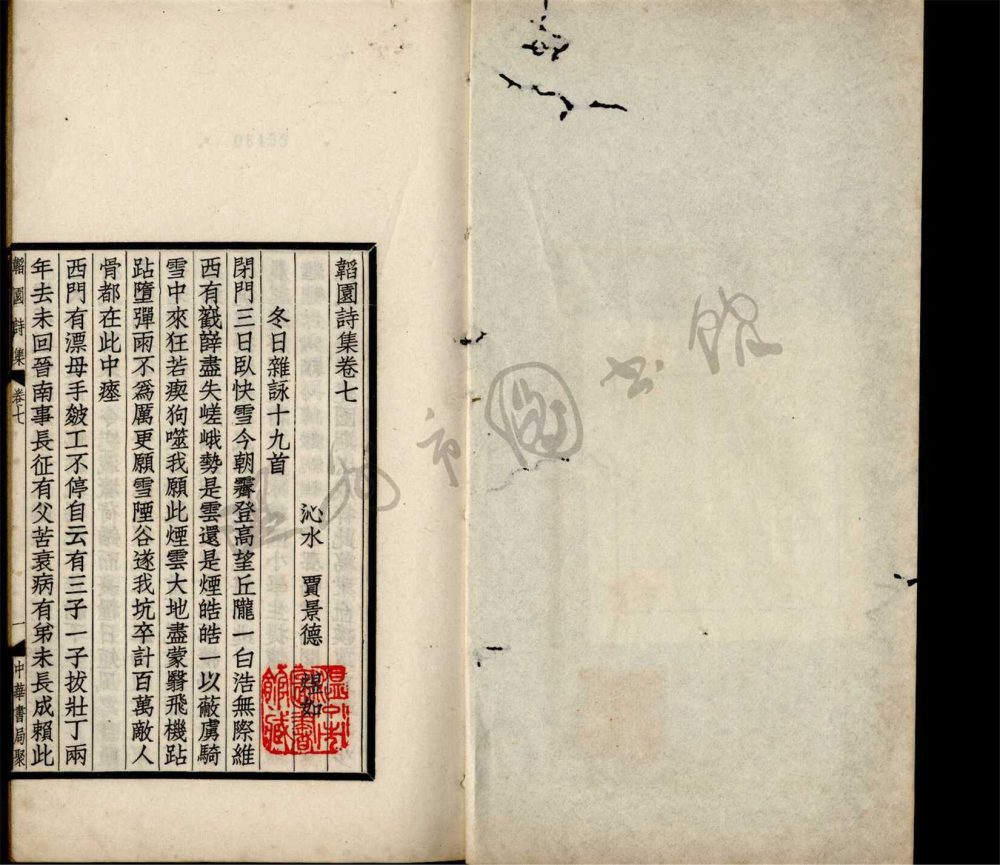 韜園詩集卷七
沁水　賈景德　煜如
冬日雜詠十九首
閉門三日臥快雪今朝霽登高望丘隴一白浩無際維
西有巀嶭盡失嵯峨勢是雲還是煙皓皓一以蔽虜騎
雪中來狂若瘈狗噬我願此煙雲大地盡蒙翳飛機跕
跕墮彈雨不爲厲更願雪陻谷遂我坑卒計百萬敵人
骨都在此中瘞
西門有漂母手皴工不停自云有三子一子拔壯丁兩
年去未回晉南事長征有父苦衰病有弟未長成賴此
韜園詩集
卷七
一
中華書局聚
溫州市圖書館